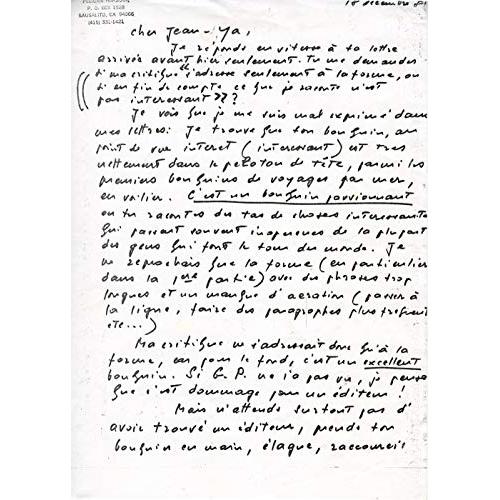 P. O. BOX 1528
SAUSALITO, CA 94966
(415) 331-1421
18 décembre 81
Cher Jean-Ya,
Je réponds en vitesse à ta lettre
arrivée avant hier seulement. Tu me demandes
si ma critique s'adresse seulement à la forme, ou
si en fin de compte, ce que je raconte n'est
pas intéressant ???
Je vois que je me suis mal exprimé dans
mes lettres. Je trouve que ton bouquin, au
point de vue intérêt (intéressant) est très
nettement dans le peloton de tête, parmi les
premiers bouquins de voyages par mer,
en voilier. C'est un bouquin passionnant
où tu racontes des tas de choses intéressantes
qui passent souvent inaperçues de la plupart
des gens qui font le tour du monde. Je
ne reprochais que la forme (en particulier
dans la 1ère partie) avec des phrases trop
longues et un manque d'aération (passer à
la ligne, faire des paragraphes plus fréquents
etc...)
Ma critique ne s'adressait donc qu'à la
forme, car pour le fond, c'est un excellent
bouquin. Si G.P. ne l'a pas vu, je pense
que c'est dommage pour un éditeur !
Mais n'attends surtout pas d'
avoir trouvé un éditeur, prends ton
bouquin en main, élague, raccourcis